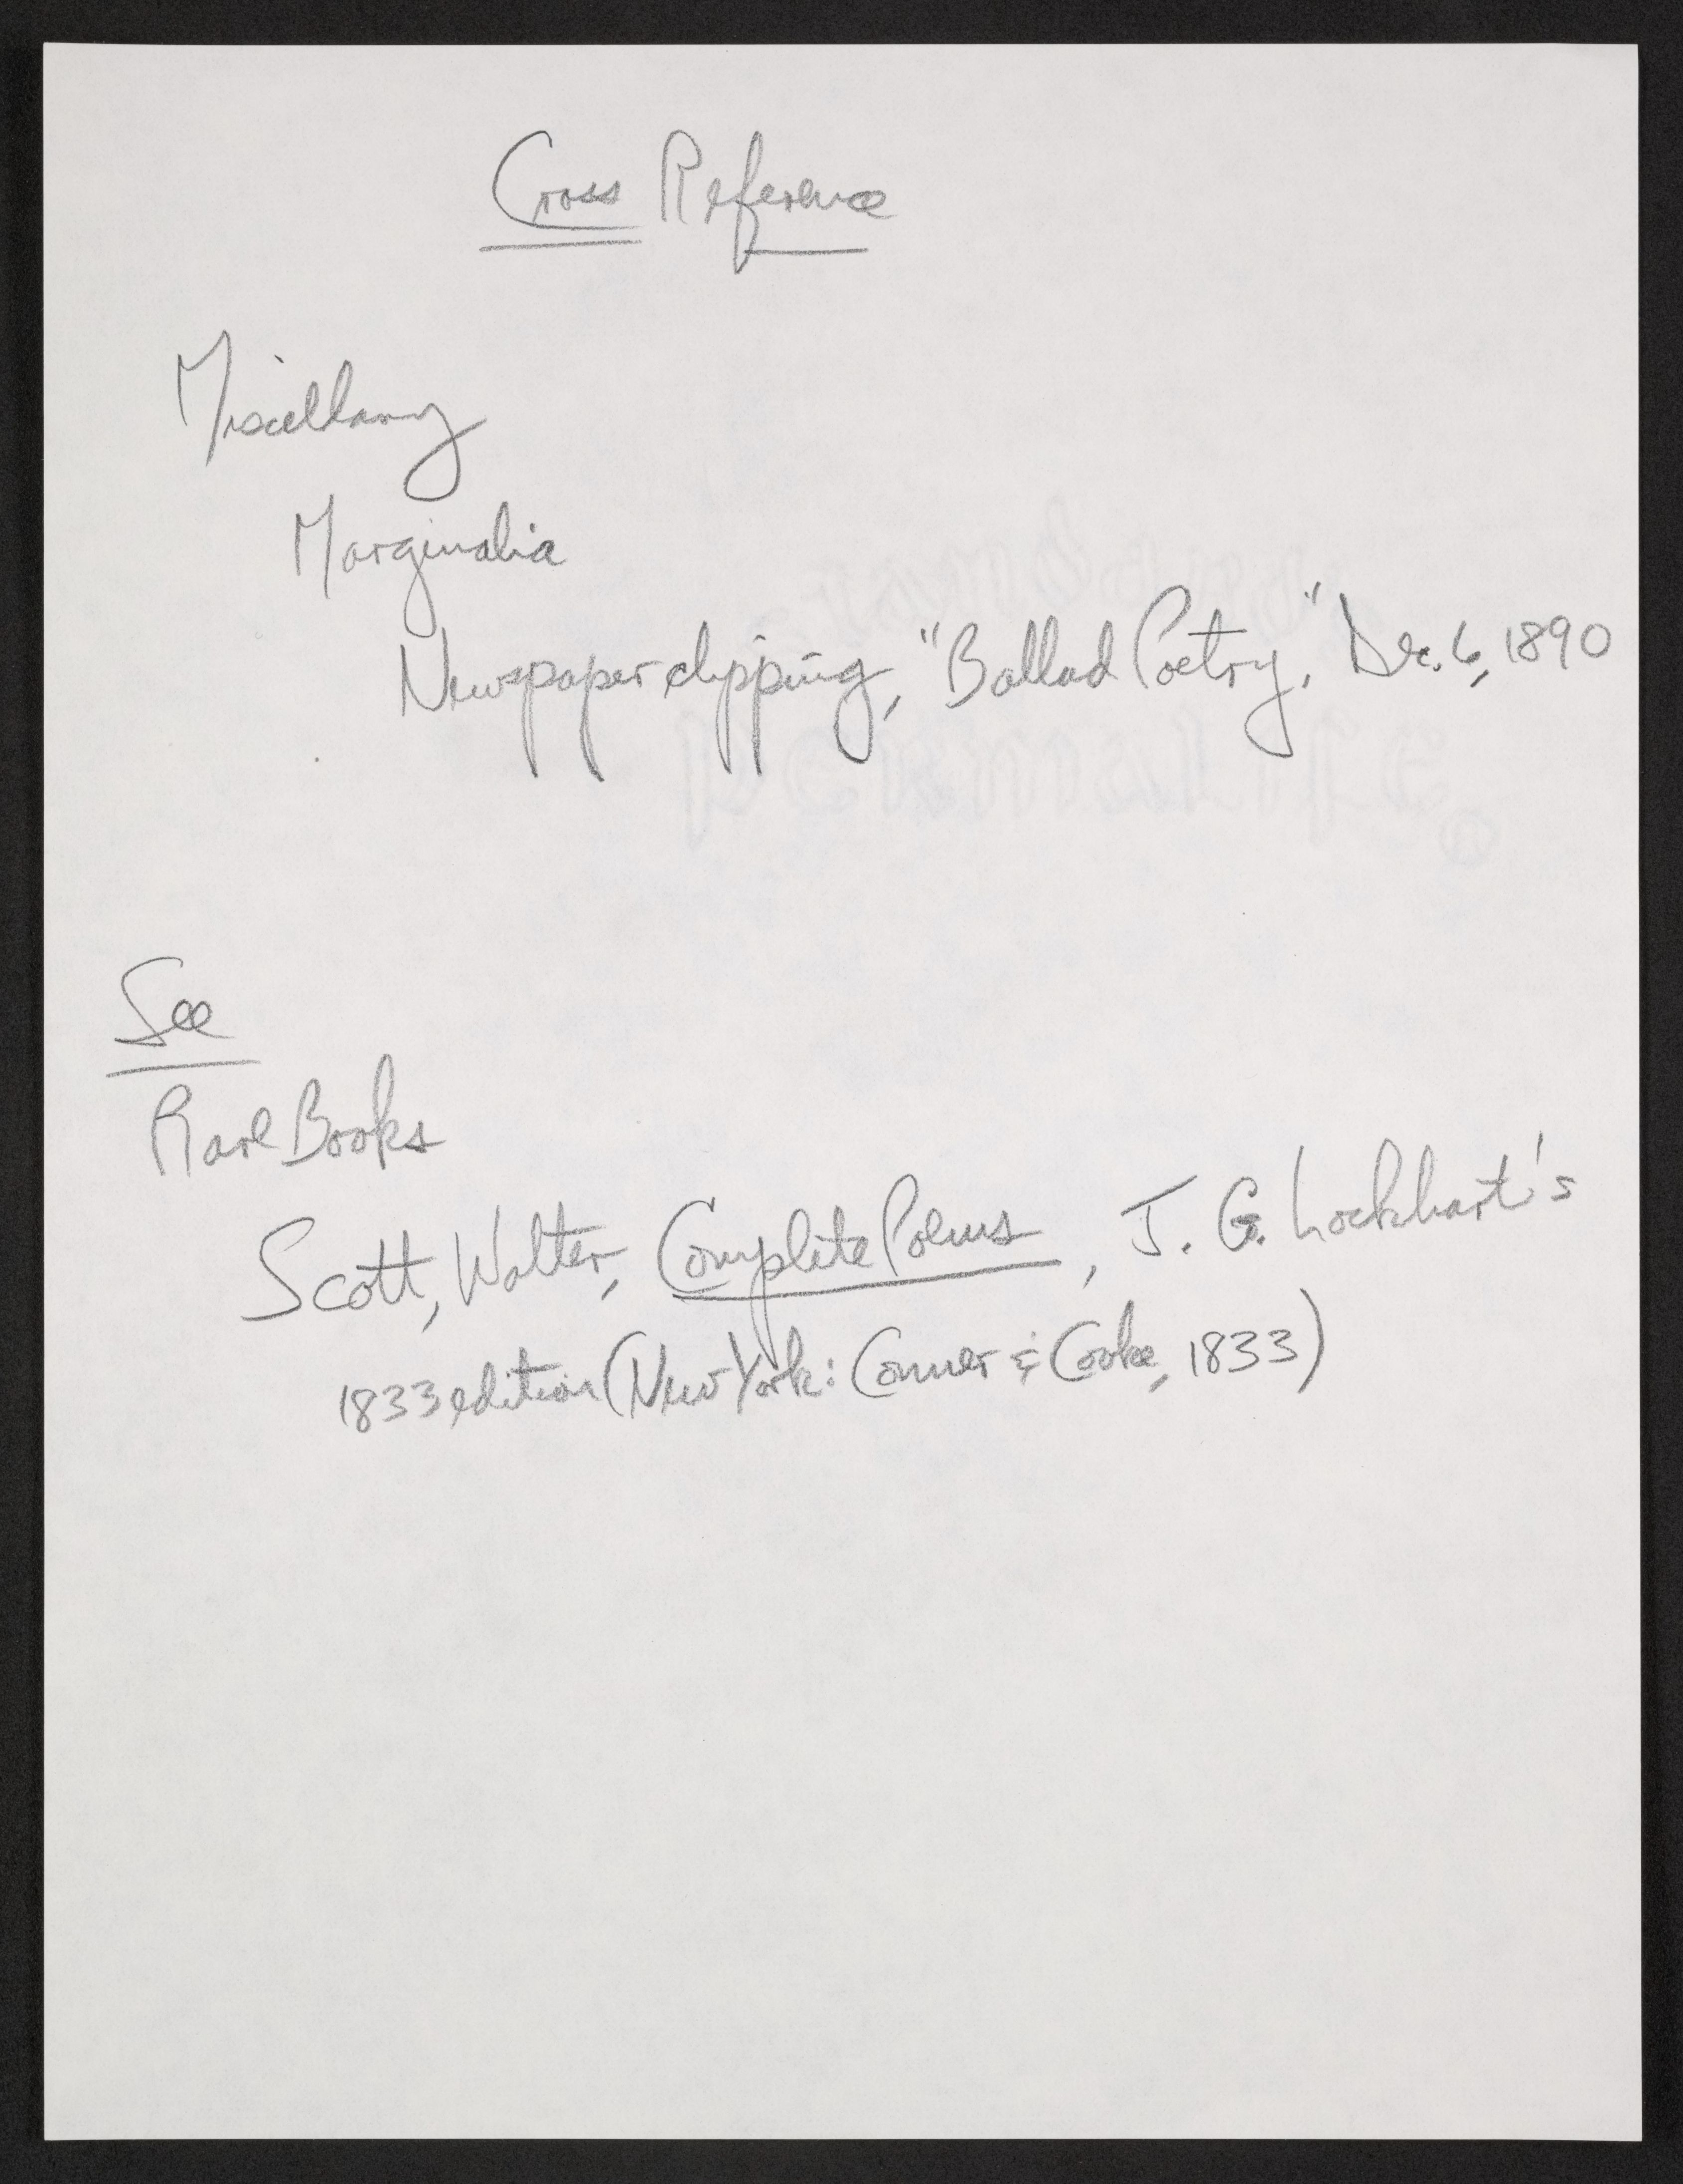 Cross Reference
Miscellany
Marginalia
Newspaper clipping, "Ballad Poetry," Dec. 6, 1890
See
Rare Books
Scott, Walter, Complete Poems, J. G. Lockhart's
1833 edition (New York: Conner & Cooke, 1833)